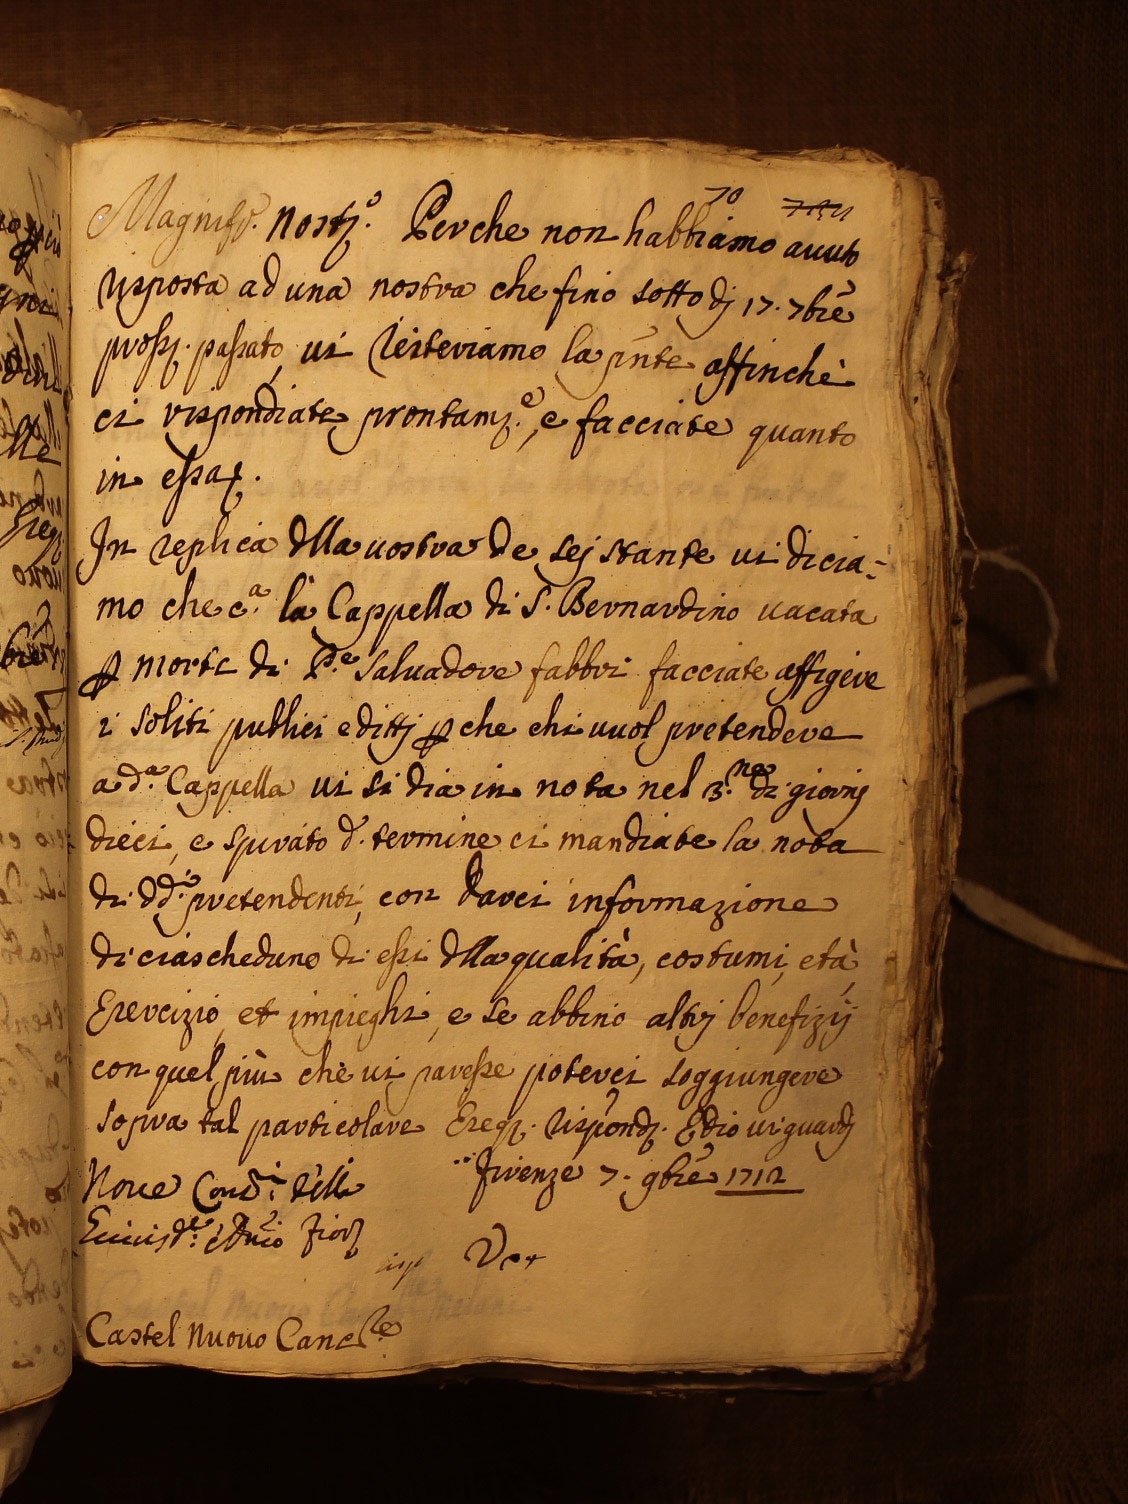 70
Magnif.co nostro. Perche non habbiamo auuto
risposta ad una nostra che fino sotto dj 17. 7bre
pross. passato, ui reiteriamo la pnte affinche
ci rispondiate prontam.e, e facciate quanto
in essa.
In replica dlla uostra de sej stante ui dicia=
mo che c.a la Cappella di S. Bernardino uacata
p morte di P.e Saluadore fabbri facciate affigere
i soliti publici edittj p che chi uuol pretendere
a d.a Cappella ui si dia in nota nel 3.ne di giornj
dieci, e spirato d. termine ci mandiate la nota
di dd.i pretendenti, con darci informazione
di ciascheduno di essi dlla qualità, costumi, età,
Esercizio, et impieghi, e se abbino altrj benefizij
con quel più che ui paresse poterci soggiungere
sopra tal particolare Eseq. rispond. E dio ui guardj
Noue Cons.i dlla Firenze 7. 9bre 1712
Giurisd.e e Dnio Fior.
Castel Nuouo Canc.re